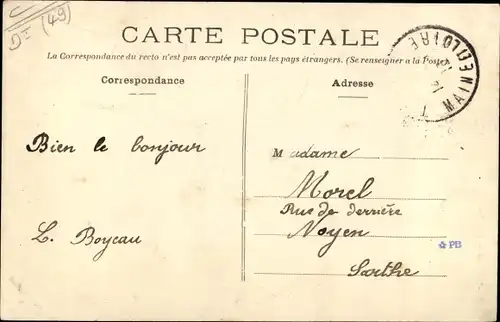 Dt (49)
CARTE POSTALE
La Correspondance du recto n'est pas acceptée par tous les pays étrangers. (Se renseigner à la Poste).
Correspondance
Adresse
MAINE ET LOIRE
Bien le bonjour
L. Boyeau
Madame
Morel
Rue de derrière
Noyen
PB
Sarthe